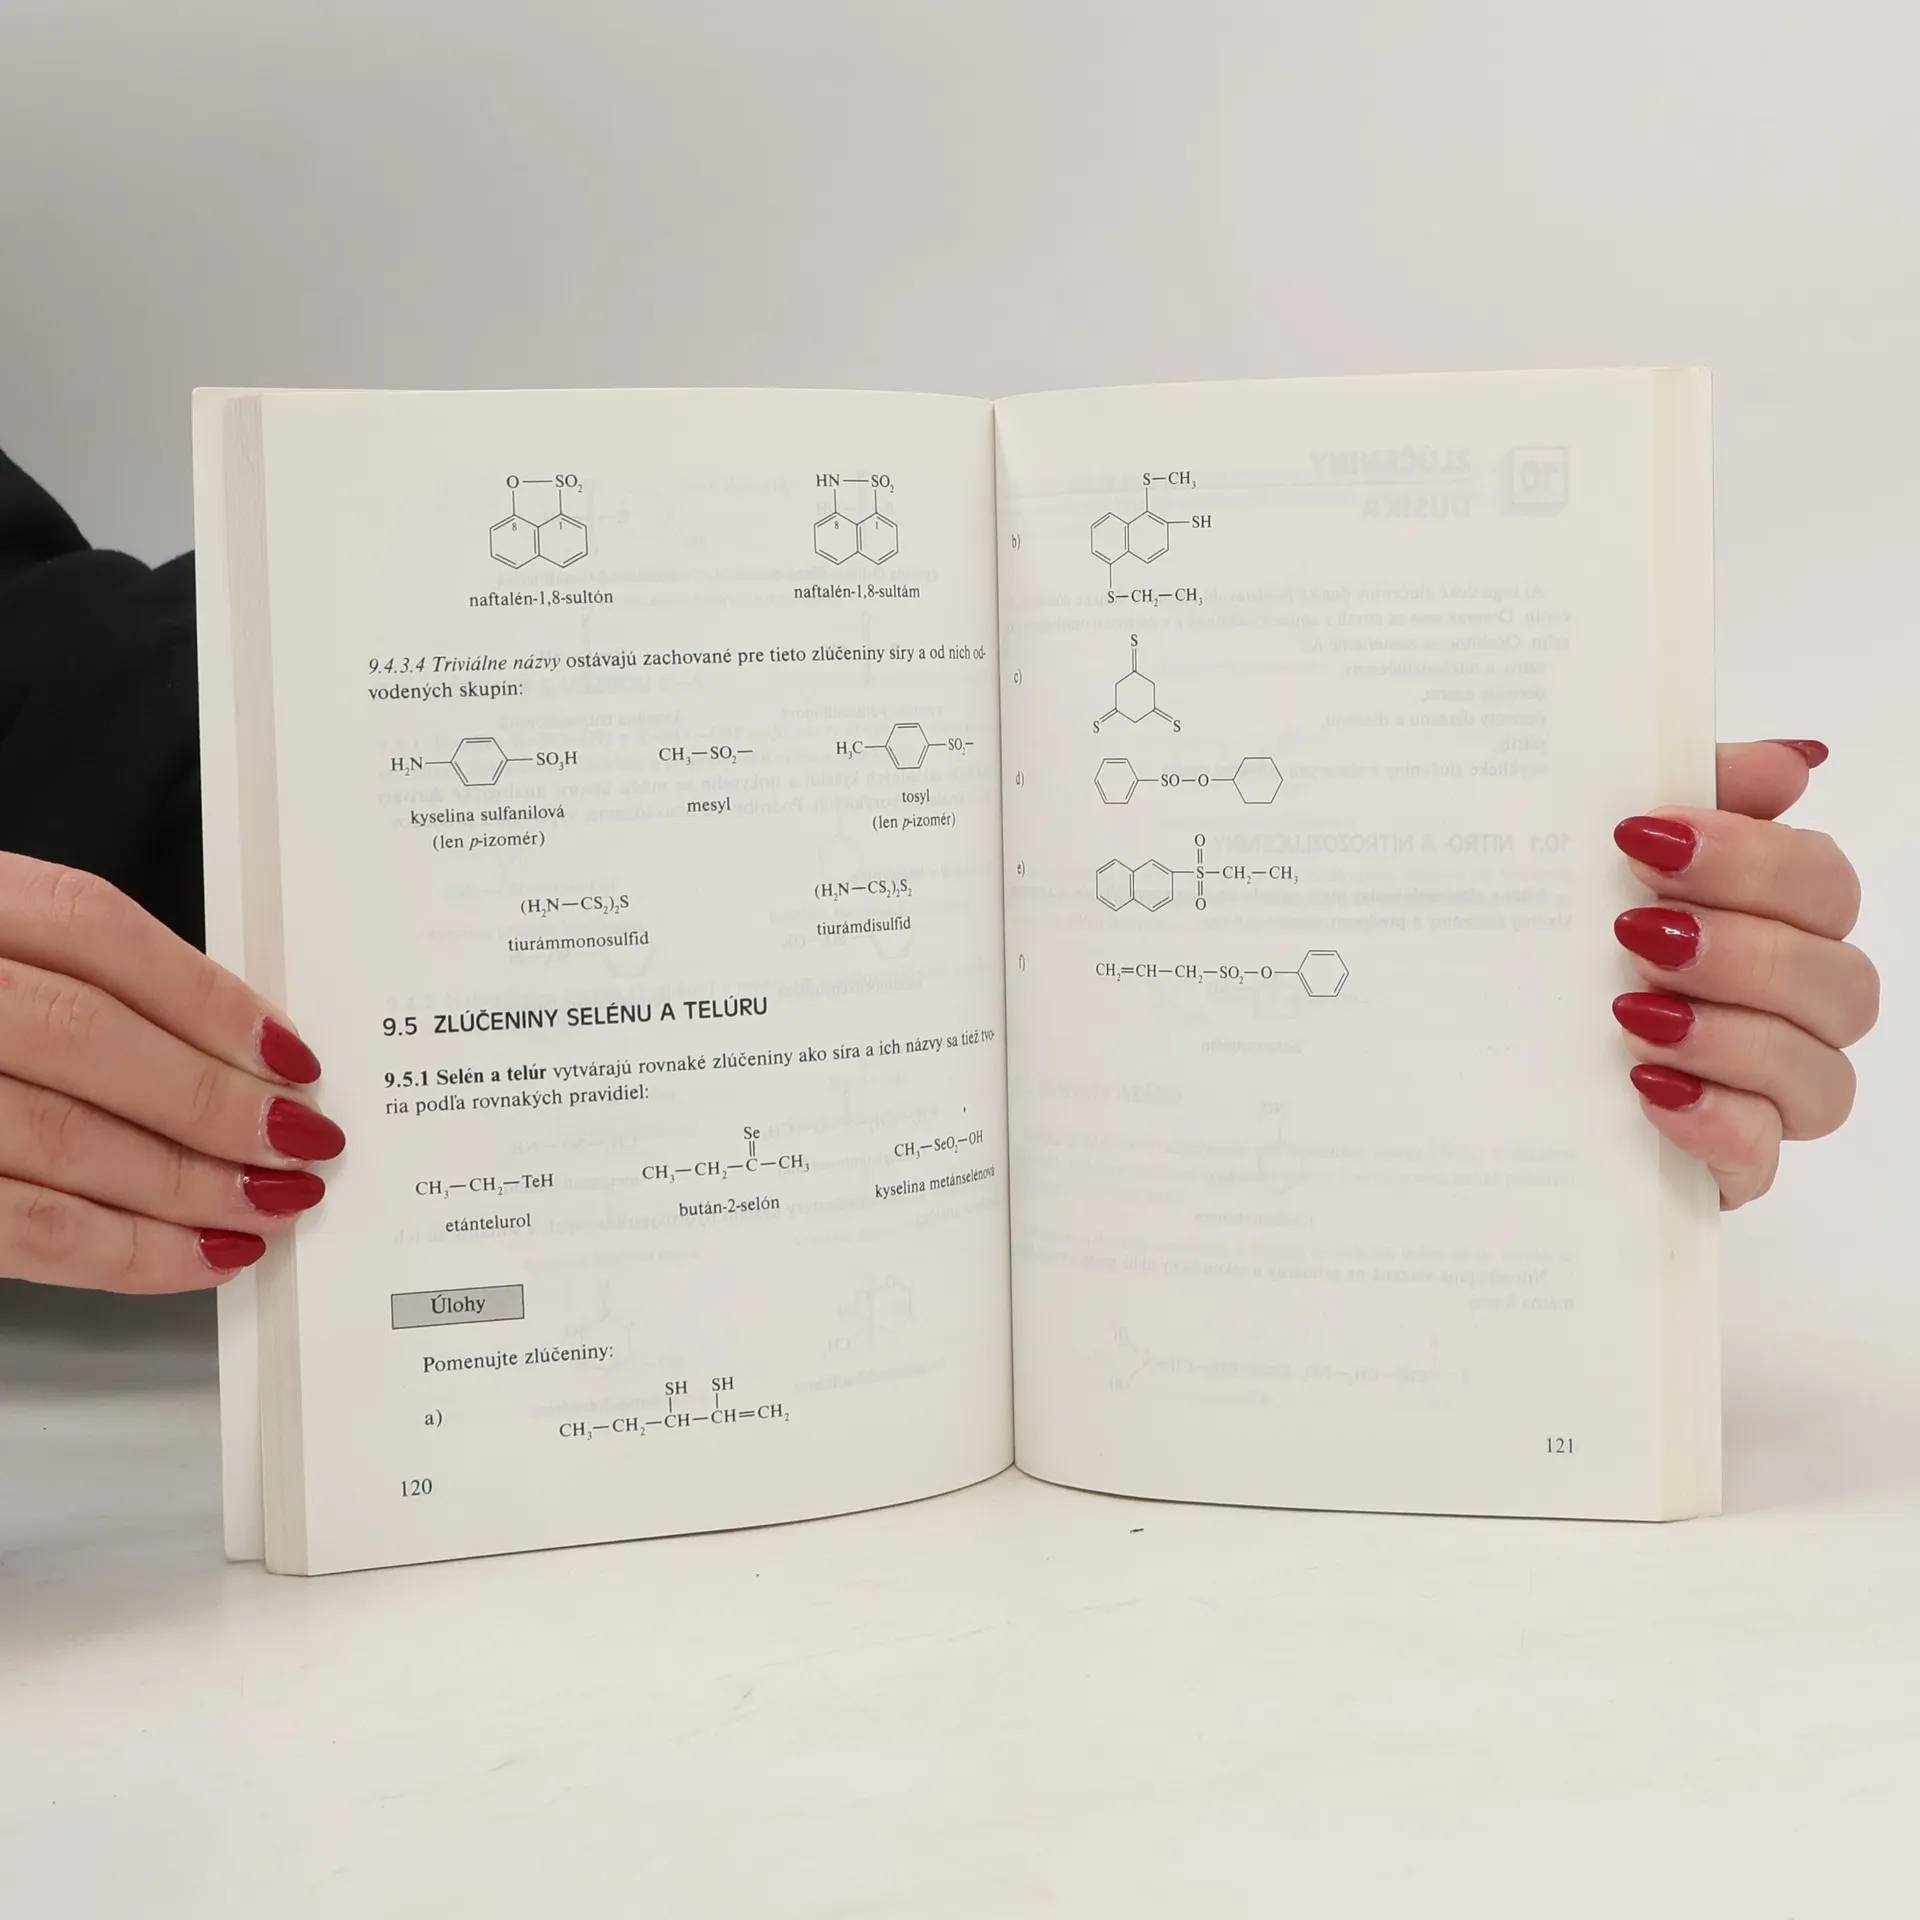 O—SO₂
8 1
naftalén-1,8-sultón
HN—SO₂
8 1
naftalén-1,8-sultám
9.4.3.4 Triviálne názvy ostávajú zachované pre tieto zlúčeniny síry a od nich od-
vodených skupín:
H₂N— —SO₃H
kyselina sulfanilová
(len p-izomér)
CH₃—SO₂—
mesyl
H₃C— —SO₂—
tosyl
(len p-izomér)
(H₂N—CS₂)₂S
tiurámmonosulfid
(H₂N—CS₂)₂S₂
tiurámdisulfid
9.5 ZLÚČENINY SELÉNU A TELÚRU
9.5.1 Selén a telúr vytvárajú rovnaké zlúčeniny ako síra a ich názvy sa tiež tvo-
ria podľa rovnakých pravidiel:
CH₃—CH₂—TeH
etántelurol
Se
CH₃—CH₂—C—CH₃
bután-2-selón
CH₃—SeO₂—OH
kyselina metánselénová
Úlohy
Pomenujte zlúčeniny:
SH SH
a) CH₃—CH₂—CH—CH=CH₂
120
S—CH₃
SH
b)
S—CH₂—CH₃
S
c)
S S
d) SO—O
O
e) S—CH₂—CH₃
O
f) CH₂=CH—CH₂—SO₂—O
121